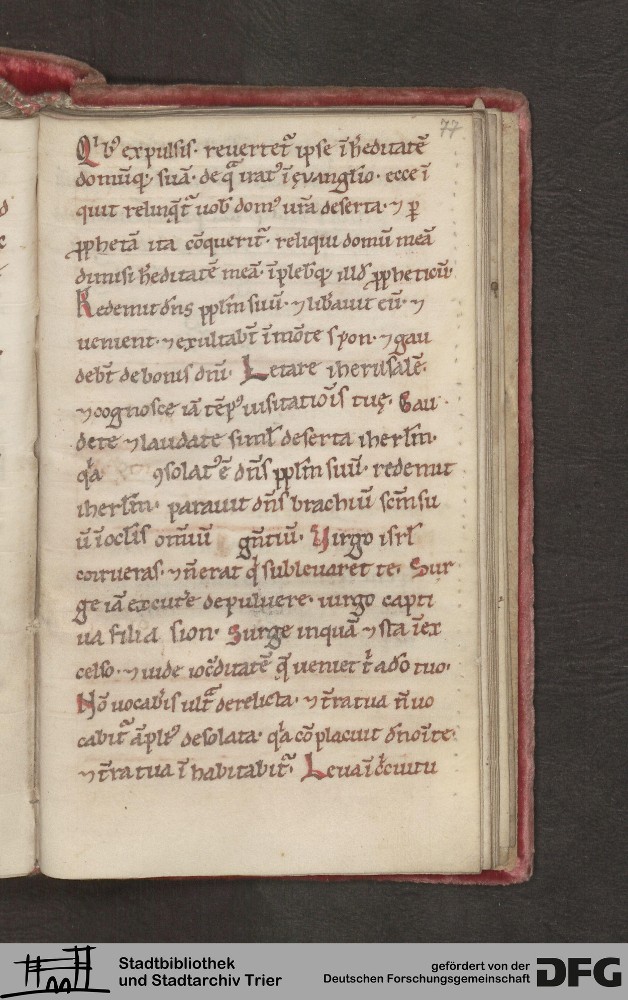 77
Qⁱb⁹ expulsis· reuertet̃ ipse ĩ h̓editatē
domūq;· suā· de q̃ uat᷒ ĩ ęvangl̃io· ecce ĩ
quit relinq̃t̃ uob̃ dom⁹ ur̃a deserta· ⁊ ꝑ
ꝓphetā ita cõquerit̃· reliqui domū meā
dimisi h̓editatē meā· ĩpleb̃q; illd̃ ꝓpheticū·
Redemit dñs ppl̃m suū· ⁊ lib̓auit eū· ⁊
uenient· ⁊ exultabt̃ ĩ mõte syon· ⁊ gau
debt̃ de bonis dñi· Letare iherusalē·
⁊ cognosce iā tẽp⁹ uisitatiõis tuę· Gau
dete ⁊ laudate siml̃ deserta iherl̃m·
q̓a ꝯsolat᷒ ē dñs ppl̃m suū· redemit
iherl̃m· parauit dñs brachiū sc̃m su
ū ĩ ocl̃is omniū gñtiū· Virgo isrl̃
corrueras· ⁊ ñ erat q̓ subleuaret te· Sur
ge iā excut̓e de puluere· uirgo capti
ua filia sion· Surge inquā ⁊ sta ĩ ex
celso· ⁊ uide ioc̃ditatē q̃ ueniet t̓ a dõ tuo·
Nõ uocab̓is ult̃ derelicta· ⁊ t̃ra tua ñ uo
cabit᷒ āpl̓⁹ desolata· q̓a cõplacuit dñõ ĩ te·
⁊ t̃ra tua ĩhabitabit᷒· Leua ĩ c̓cuitu
Stadtbibliothek
und Stadtarchiv Trier
gefördert von der
Deutschen Forschungsgemeinschaft
DFG